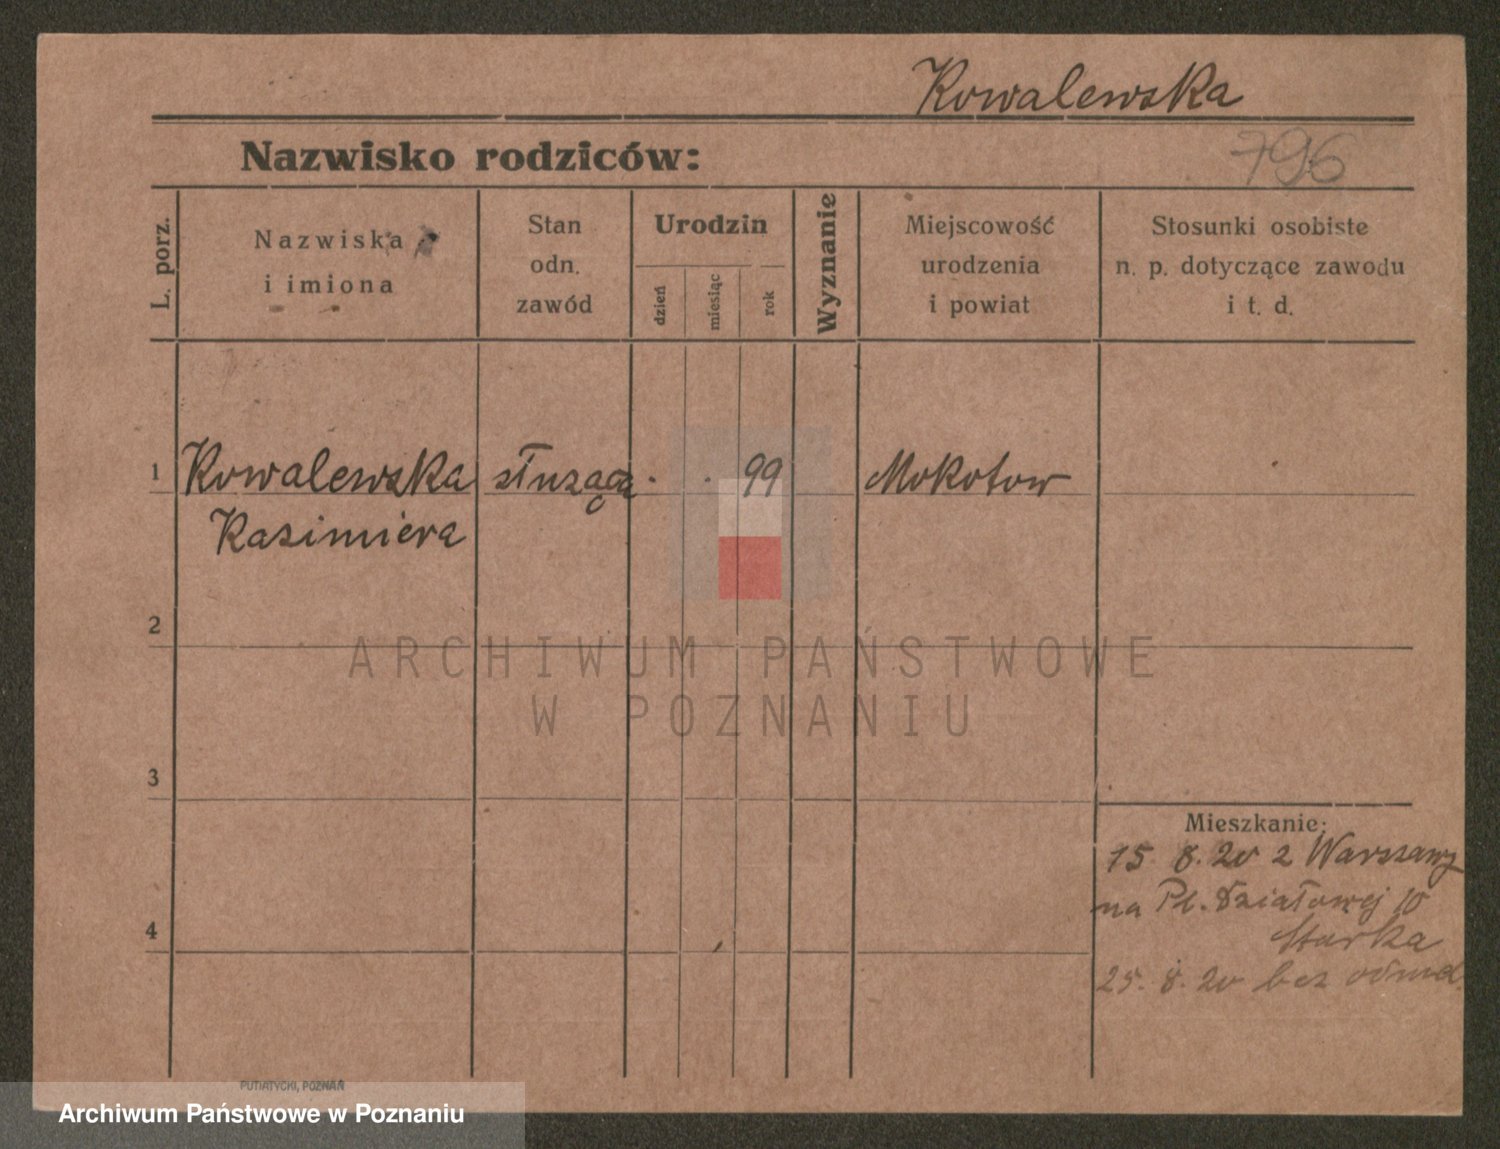 Kowalewska
796
Nazwisko rodziców:
L. porz.
Nazwiska
i imiona
Stan
odn.
zawód
Urodzin
dzień
miesiąc
rok
Wyznanie
Miejscowość
urodzenia
i powiat
Stosunki osobiste
n. p. dotyczące zawodu
i t. d.
1 Kowalewska służąca . . 99 Mokotow
Kazimiera
2
3
4
Mieszkanie:
15. 8. 20 z Warszawy
na Pl. Działowej 10
Starka
25. 8. 20 bez odmel.
ARCHIWUM PAŃSTWOWE
W POZNANIU
PUTIATYCKI, POZNAŃ
Archiwum Państwowe w Poznaniu